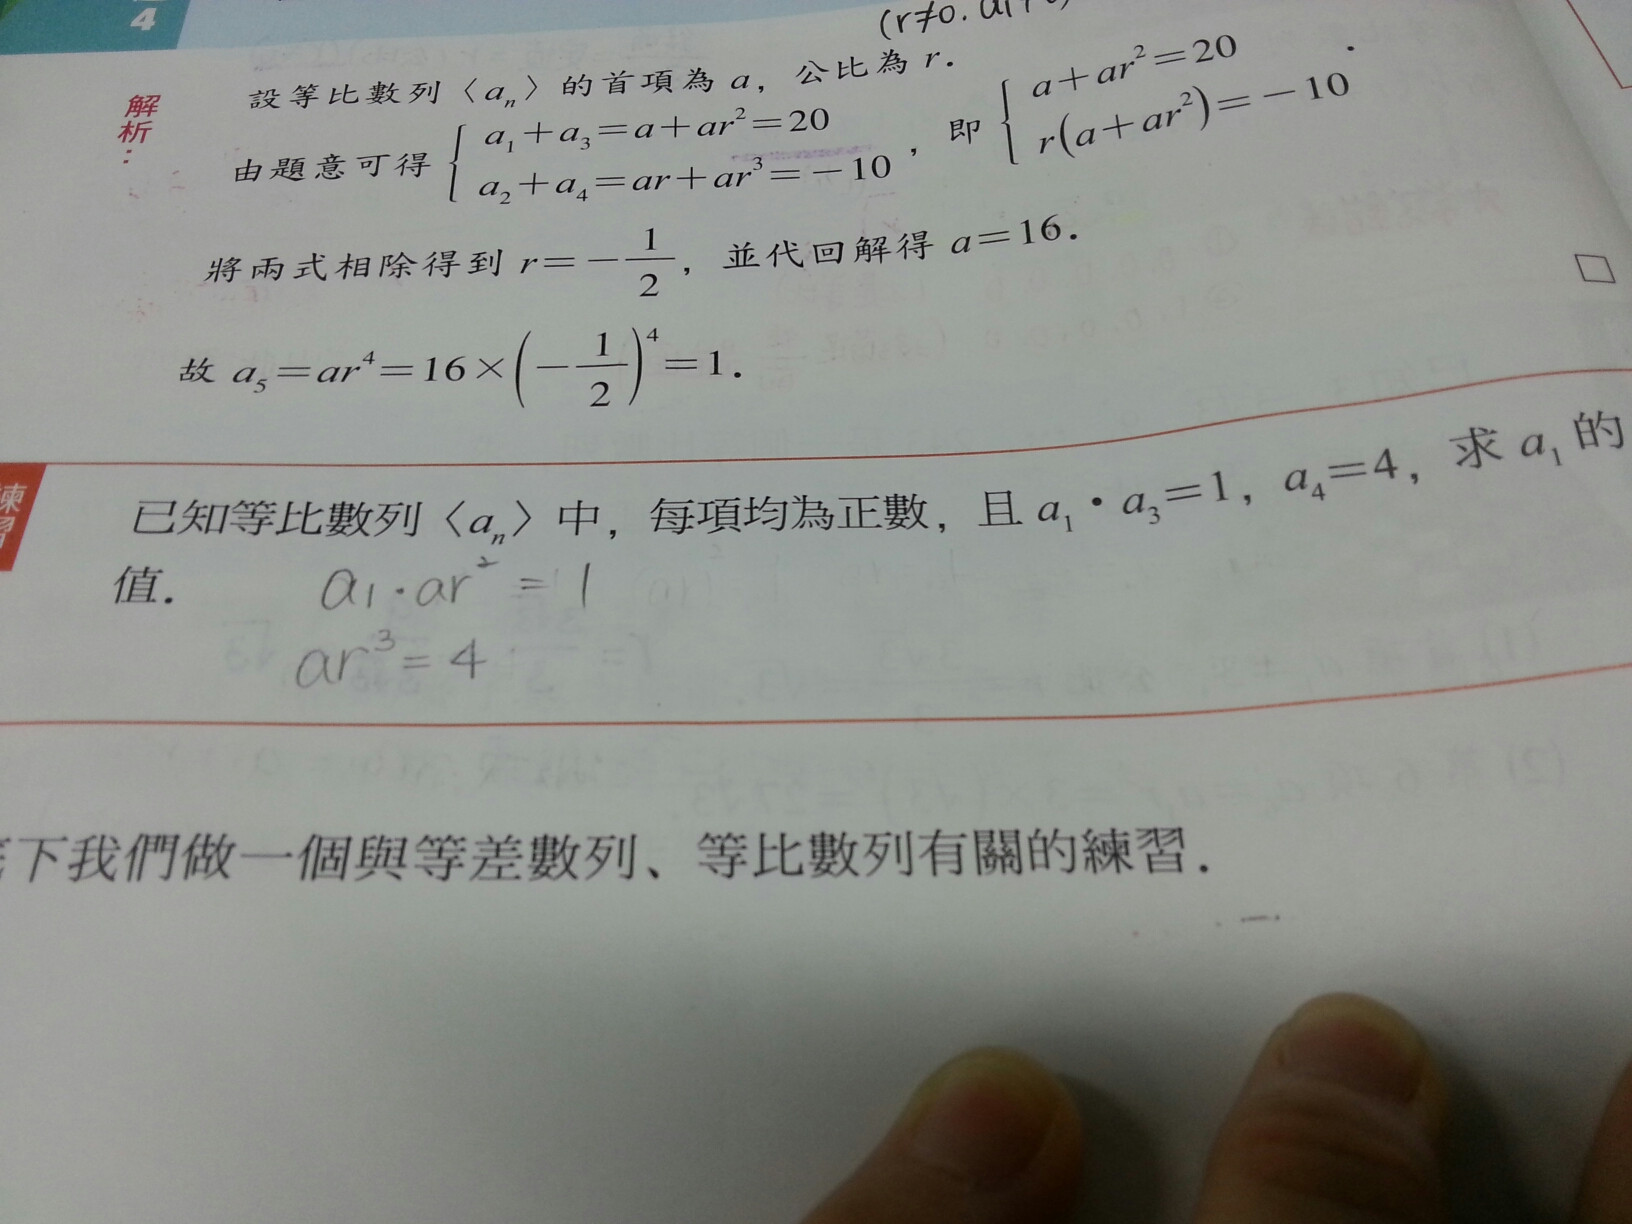 4
(r≠0.
解析：
設等比數列〈aₙ〉的首項為 a，公比為 r．
由題意可得 { a₁+a₃=a+ar²=20
a₂+a₄=ar+ar³=−10 ，即 { a+ar²=20
r(a+ar²)=−10
將兩式相除得到 r=−1/2，並代回解得 a=16．
故 a₅=ar⁴=16×(−1/2)⁴=1．
□
練習
已知等比數列〈aₙ〉中，每項均為正數，且 a₁·a₃=1，a₄=4，求 a₁ 的
值．
a₁·ar²=1
ar³=4
下我們做一個與等差數列、等比數列有關的練習．